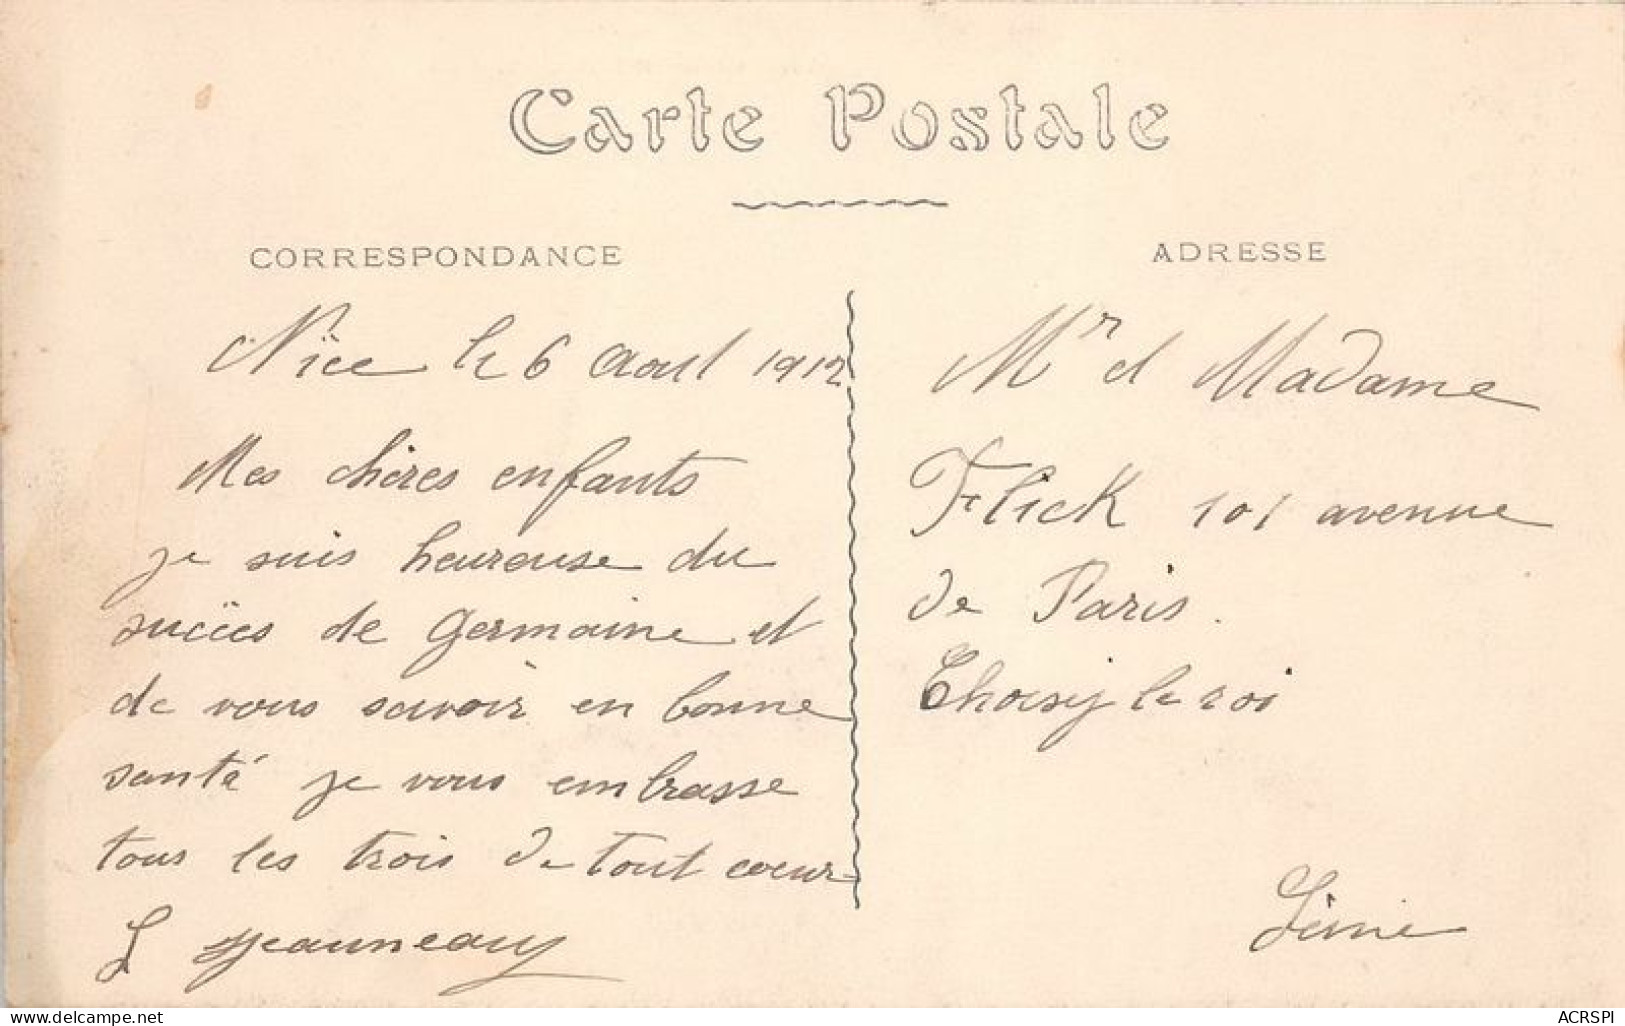 Carte Postale
CORRESPONDANCE
Nice le 6 Aout 1912
Mes chères enfants
je suis heureuse du
succes de Germaine et
de vous savoir en bonne
santé je vous embrasse
tous les trois de tout coeur
Jeanneau
ADRESSE
Mr et Madame
Flick 101 avenue
de Paris.
Choisy le roi
Seine
delcampe.net
ACRSPI